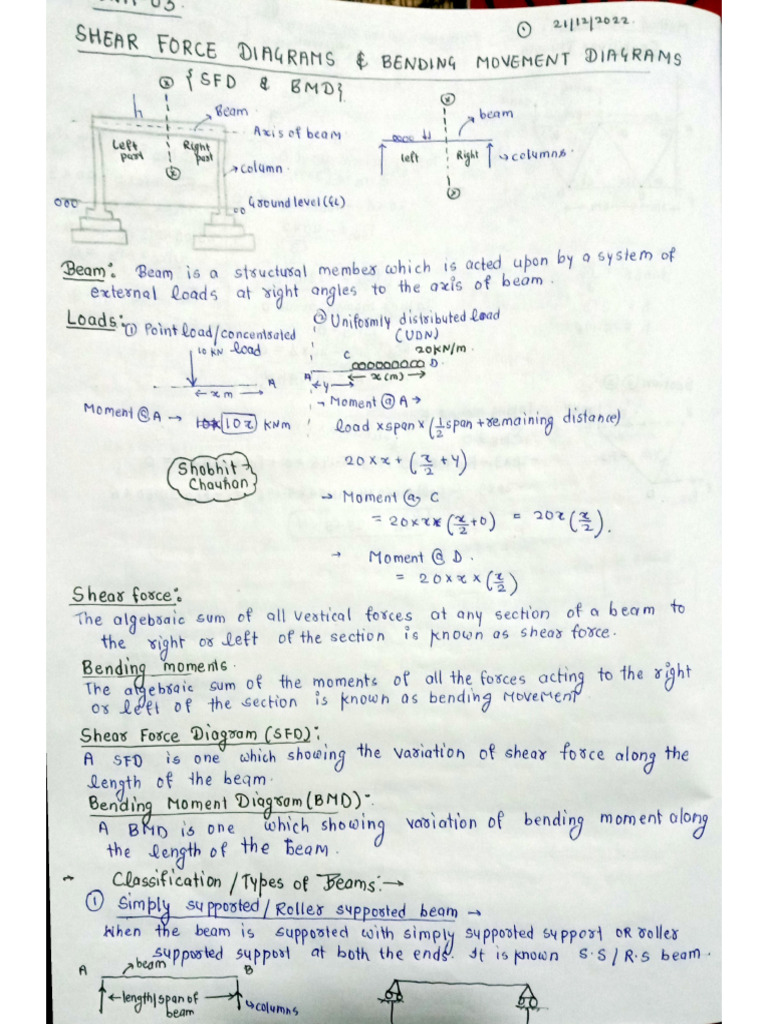 03.
① 21/12/2022.
SHEAR FORCE DIAGRAMS & BENDING MOVEMENT DIAGRAMS
{SFD & BMD}.
h
Beam.
Axis of beam
Left part
Right part
→column.
Ground level (GL)
beam
left
Right
→columns.
Beam: Beam is a structural member which is acted upon by a system of
external loads at right angles to the axis of beam.
Loads: ① Point load/concentrated
load
10 KN
← x m →
A
Moment @ A → 10x KNm
② Uniformly distributed load
(UDN)
20KN/m.
C
D.
A
←y→
← x(m) →
→ Moment @ A →
load x span x (1/2 span + remaining distance)
20 x x + (x/2 + y)
Shobhit
Chauhan
→ Moment @ C
= 20 x x x (x/2 + 0) = 20x (x/2).
→ Moment @ D.
= 20 x x x (x/2)
Shear force:
The algebraic sum of all vertical forces at any section of a beam to
the right or left of the section is known as shear force.
Bending moments.
The algebraic sum of the moments of all the forces acting to the right
or left of the section is known as bending movement.
Shear Force Diagram (SFD):
A SFD is one which showing the variation of shear force along the
length of the beam.
Bending Moment Diagram (BMD)-
A BMD is one which showing variation of bending moment along
the length of the beam.
Classification / Types of Beams:→
① Simply supported / Roller supported beam →
When the beam is supported with simply supported support OR roller
supported support at both the ends. It is known S.S / R.S beam.
A
beam
B
←length/span of beam→
columns